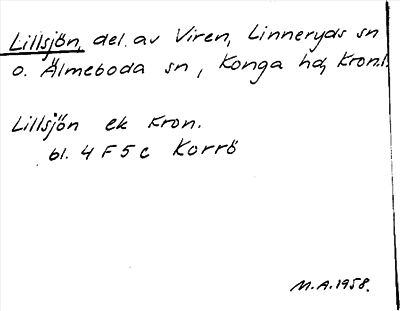 Lillsjön, del av Viren, Linneryds sn
o. Älmeboda sn, Konga hd, Kron.l.
Lillsjön ek Kron.
bl. 4 F 5 c Korrö
M.A. 1958.